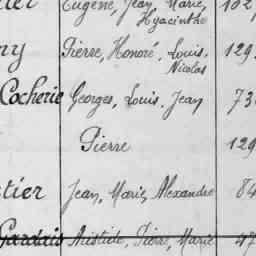 Eugène, Jean, Marie,
Hyacinthe
ny Pierre, Honoré, Louis. 129
Nicolas
Cocherie Georges, Louis, Jean 73
Pierre 129
tier Jean, Marie, Alexandre 84
Aristide, Pierre, Marie 47